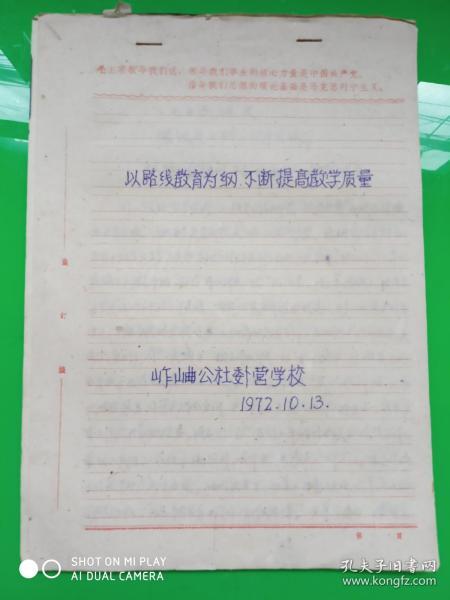 毛主席教导我们说：领导我们事业的核心力量是中国共产党。
指导我们思想的理论基础是马克思列宁主义。
以路线教育为纲、不断提高教学质量
装
订
线
岞山曲公社卦营学校
1972.10.13.
第 页
SHOT ON MI PLAY
AI DUAL CAMERA
孔夫子旧书网
www.kongfz.com